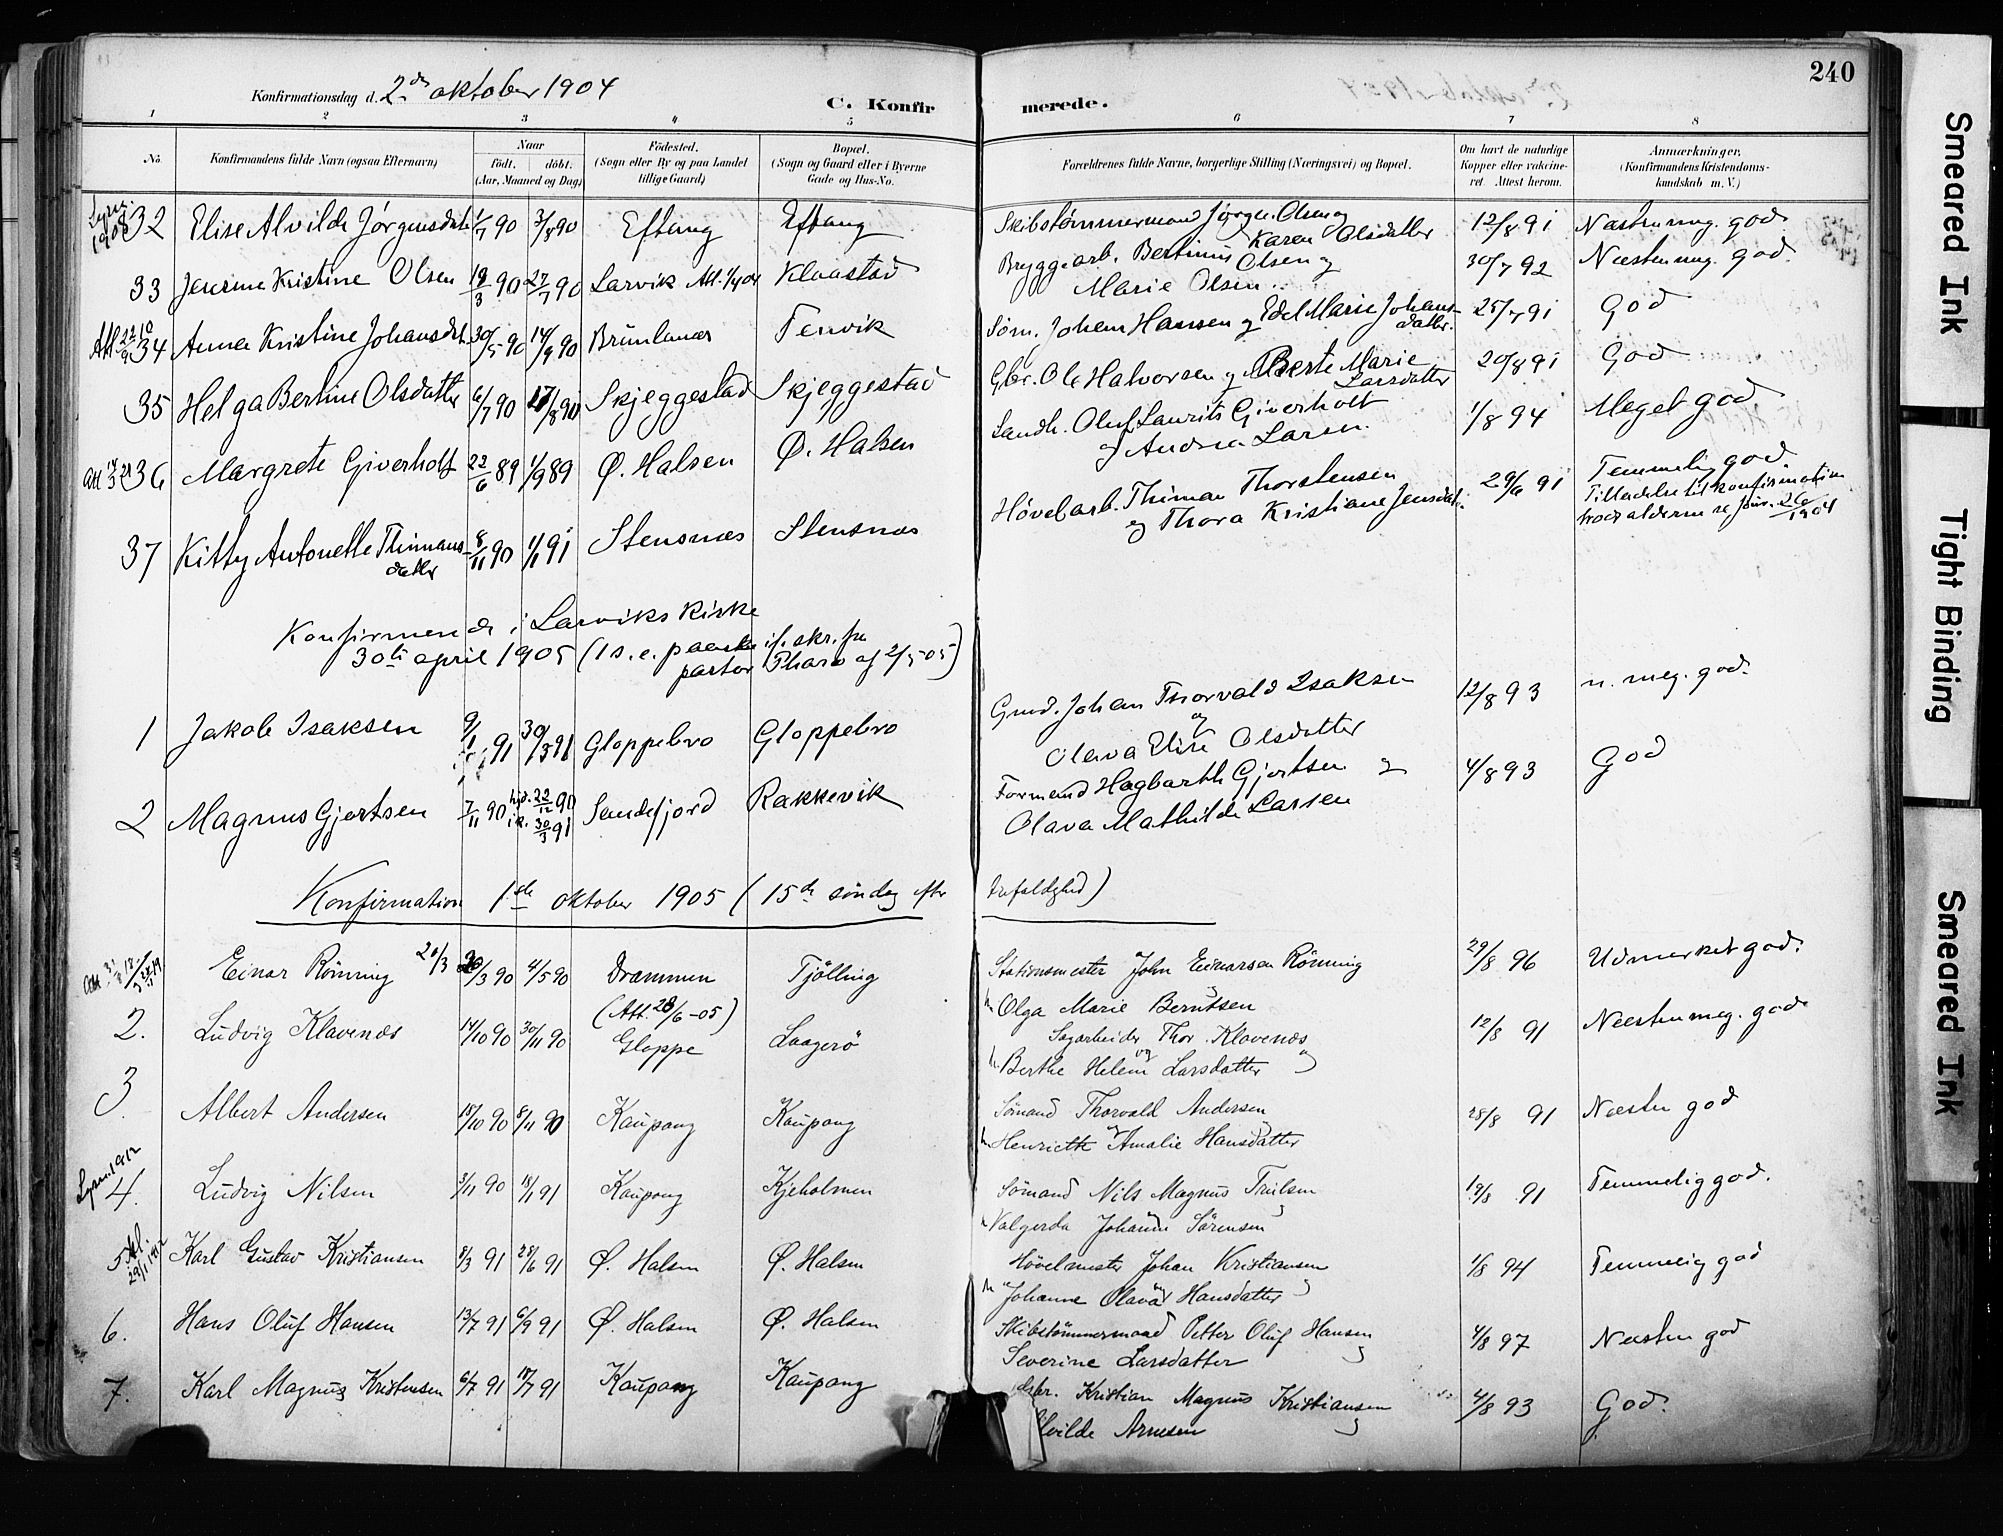 240
Konfirmationsdag d. 2den oktober 1904
C. Konfirmerede.
1 2 3 4 5 6 7 8
No. Konfirmandens fulde Navn (ogsaa Efternavn) Naar født. døbt. (Aar, Maaned og Dag) Fødested. (Sogn eller By og paa Landet tillige Gaard) Bopæl. (Sogn og Gaard eller i Byerne Gade og Hus-No. Forældrenes fulde Navne, borgerlige Stilling (Næringsvei) og Bopæl. Om havt de naturlige Kopper eller vaccineret. Attest herom. Anmærkninger. (Konfirmandens Kristendomskundskab m. V.)
32 Elise Alvilde Jørgensdatr 1/7 90 3/8 90 Eftang Eftang Skibstømmermand Jørgen Olsen og Karen Olsdatter 12/8 91 Næsten meg. god
33 Jensine Kristine Olsen 19/3 90 27/7 90 Larvik Klaastad Bryggearb. Bertinius Olsen og Marie Olsen 30/7 92 Næsten meg. god
34 Anna Kristine Johansdat 30/5 90 14/9 90 Brunlanæs Tenvik Søm. Johan Hansen og Edel Marie Johansdatter 25/7 91 God
35 Helga Bertine Olsdatter 6/7 90 17/8 90 Skjeggestad Skjeggestad Gbr. Ole Halvorsen og Berte Marie Larsdatter 20/8 91 God
36 Margrete Giverholt 22/6 89 1/9 89 Ø. Halsen Ø. Halsen Landh. Oluf Laurits Giverholt og Andrea Larsen 1/8 94 Meget god
37 Kitty Antonette Thimansdatter 8/11 90 1/1 91 Stensnæs Stensnæs Høvelarb. Thiman Thorstensen og Thora Kristiane Jensdatr. 29/6 91 Temmelig god Tilladelse til konfirmation se Jour. 26/1904
Konfirmerede i Larviks Kirke
30te april 1905 (1 s. e. paaske if. skr. fra
pastor Tharo af 2/5-05)
1 Jakob Isaksen 9/1 91 30/3 91 Gloppebro Gloppebro Grud. Johan Thorvald Isaksen og Olava Elise Olsdatter 12/8 93 n. meg. god.
2 Magnus Gjertsen 7/11 90 hjd. 22/12 90 i k. 30/3 91 Sandefjord Rakkevik Formand Hagbarth Gjertsen og Olava Mathilde Larsen 4/8 93 God
Konfirmation 1ste oktober 1905 (15de søndag efter trefoldighed)
Einar Rønning 20/3 90 4/5 90 Drammen (Att. 28/6-05) Tjølling Stationsmester John Einarsen Rønning og Olga Marie Berntsen 29/8 96 Udmerket god.
2. Ludvig Klavenæs 14/10 90 30/11 90 Gloppe Laagerø Sagarbeider Thor Klavenæs og Berthe Helene Larsdatter 12/8 91 Næsten meg. god
3. Albert Andersen 18/10 90 8/11 90 Kaupang Kaupang Sømand Thorvald Andersen og Henriette Amalie Hansdatter 28/8 91 Næsten god
Lysn. 1912
4. Ludvig Nilsen 3/11 90 18/1 91 Kaupang Kjeholmen Sømand Nils Magnus Trulsen og Valgerda Johanne Sørensen 19/8 91 Temmelig god.
5 Karl Gustav Kristiansen 8/3 91 28/6 91 Ø. Halsen Ø. Halsen Høvelmester Johan Kristiansen og Johanne Olava Hansdatter 1/8 94 Temmelig god
6. Hans Oluf Hansen 13/7 91 6/9 91 Ø. Halsen Ø. Halsen Skibstømmermand Petter Oluf Hansen og Severine Larsdatter 4/8 97 Næsten god
7. Karl Magnus Kristensen 6/7 91 17/7 91 Kaupang Kaupang Kristian Magnus Kristiansen Arnesen 4/8 93 God.
Smeared Ink
Tight Binding
Smeared Ink